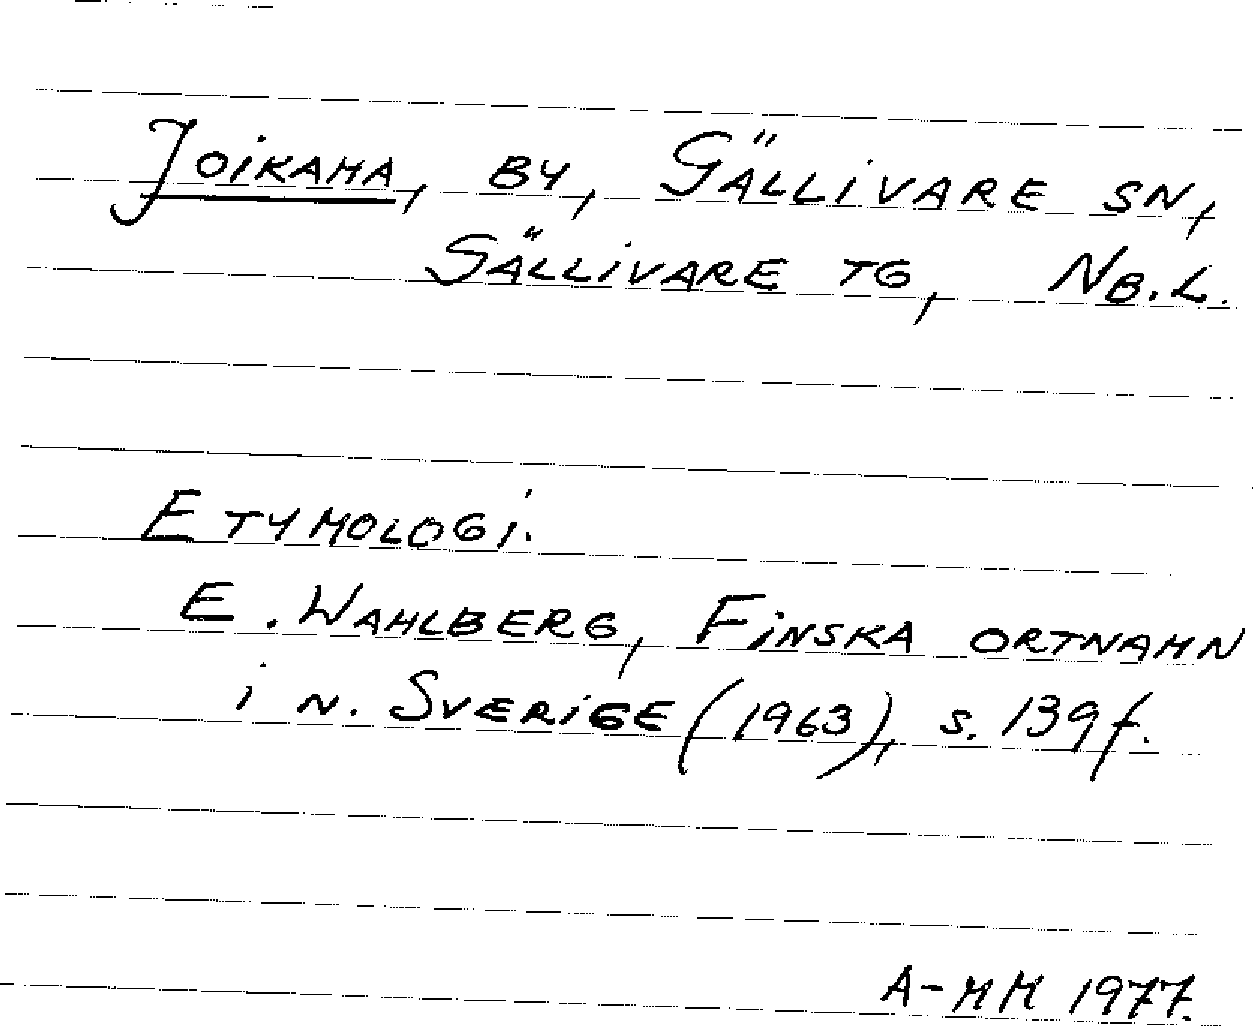 Joikama, by, Gällivare sn,
Gällivare tg, Nb.l.
Etymologi.
E. Wahlberg, Finska ortnamn
i n. Sverige (1963), s. 139 f.
A-MM 1977.